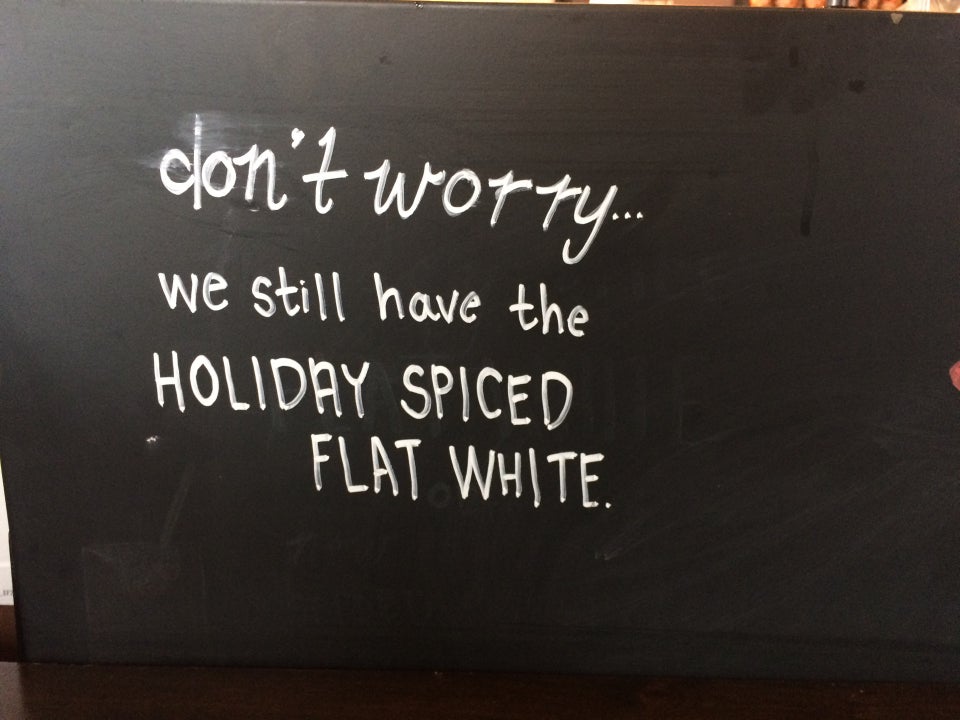 don't worry...
we still have the
HOLIDAY SPICED
FLAT WHITE.